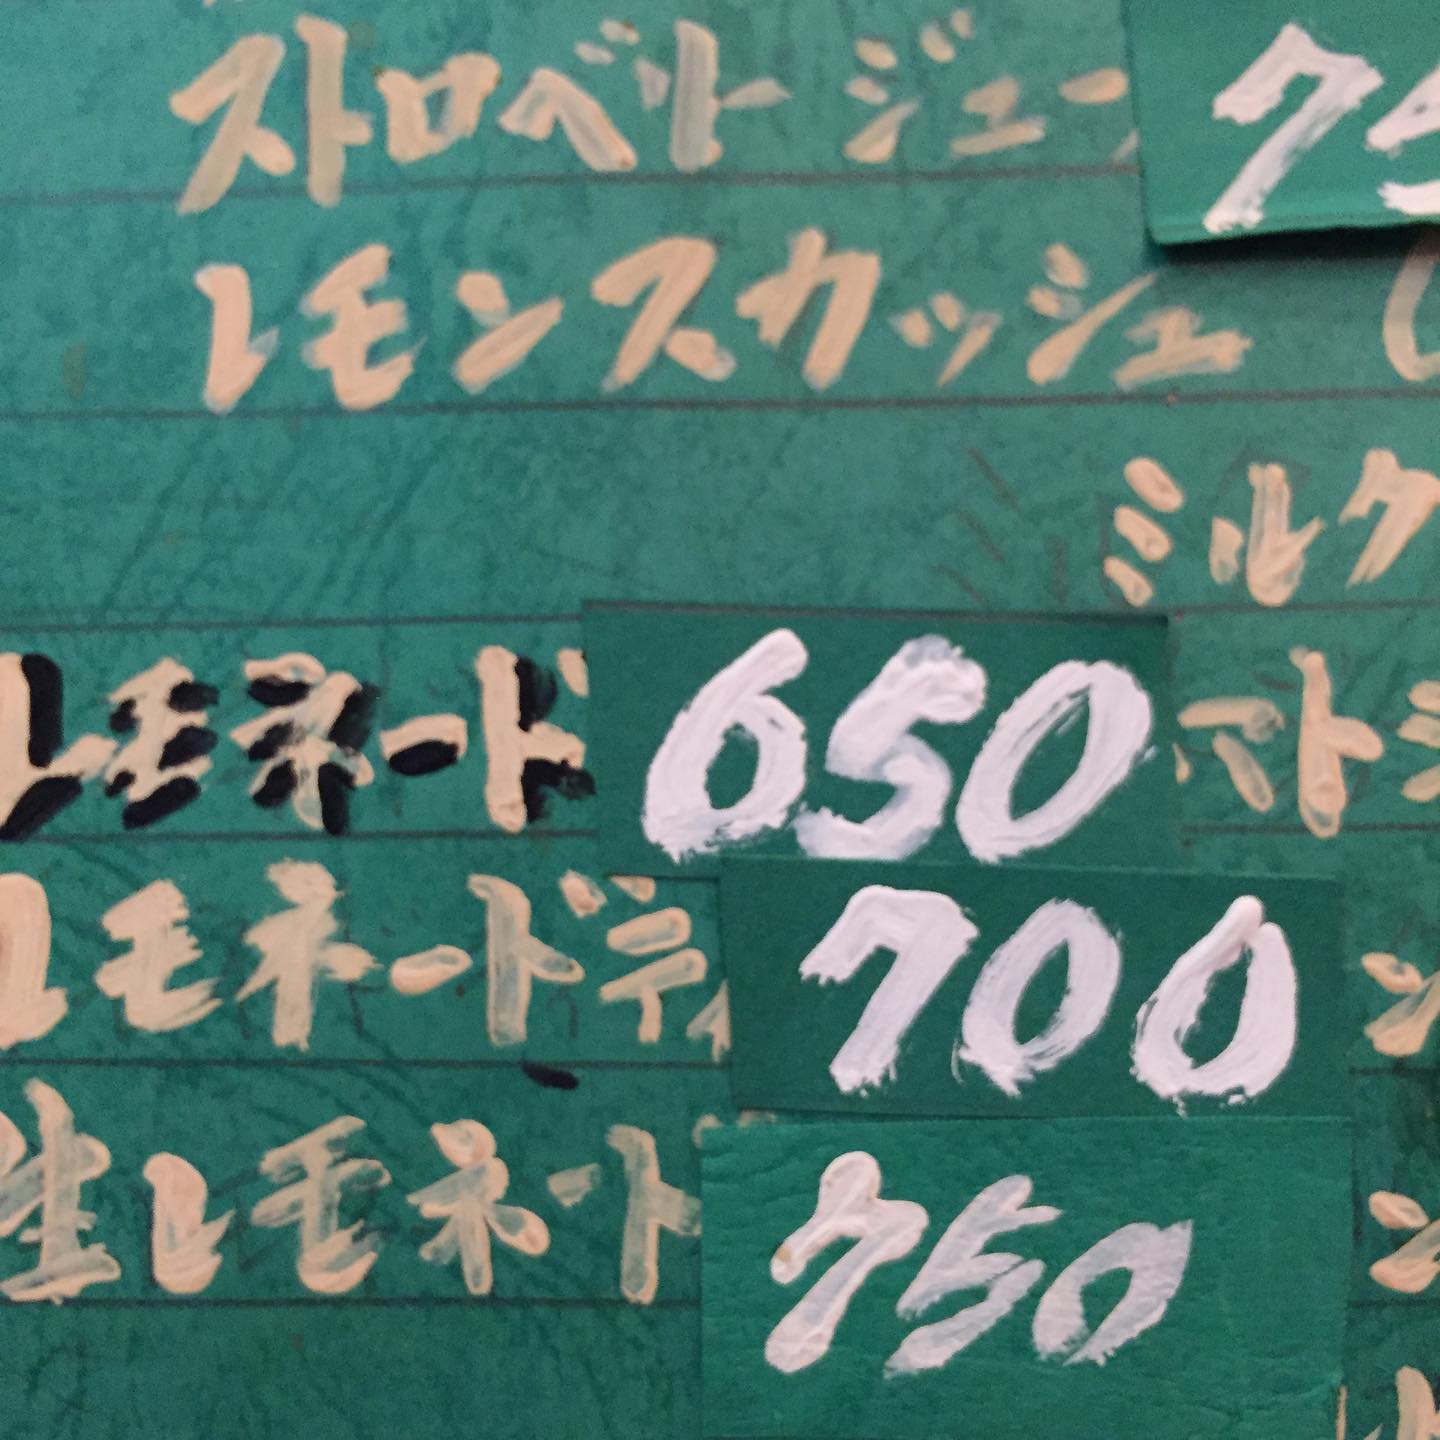 ストロベリージュー 75
レモンスカッシュ (
ミルク
レモネード 650 マトジ
レモネードティ 700
生レモネード 750